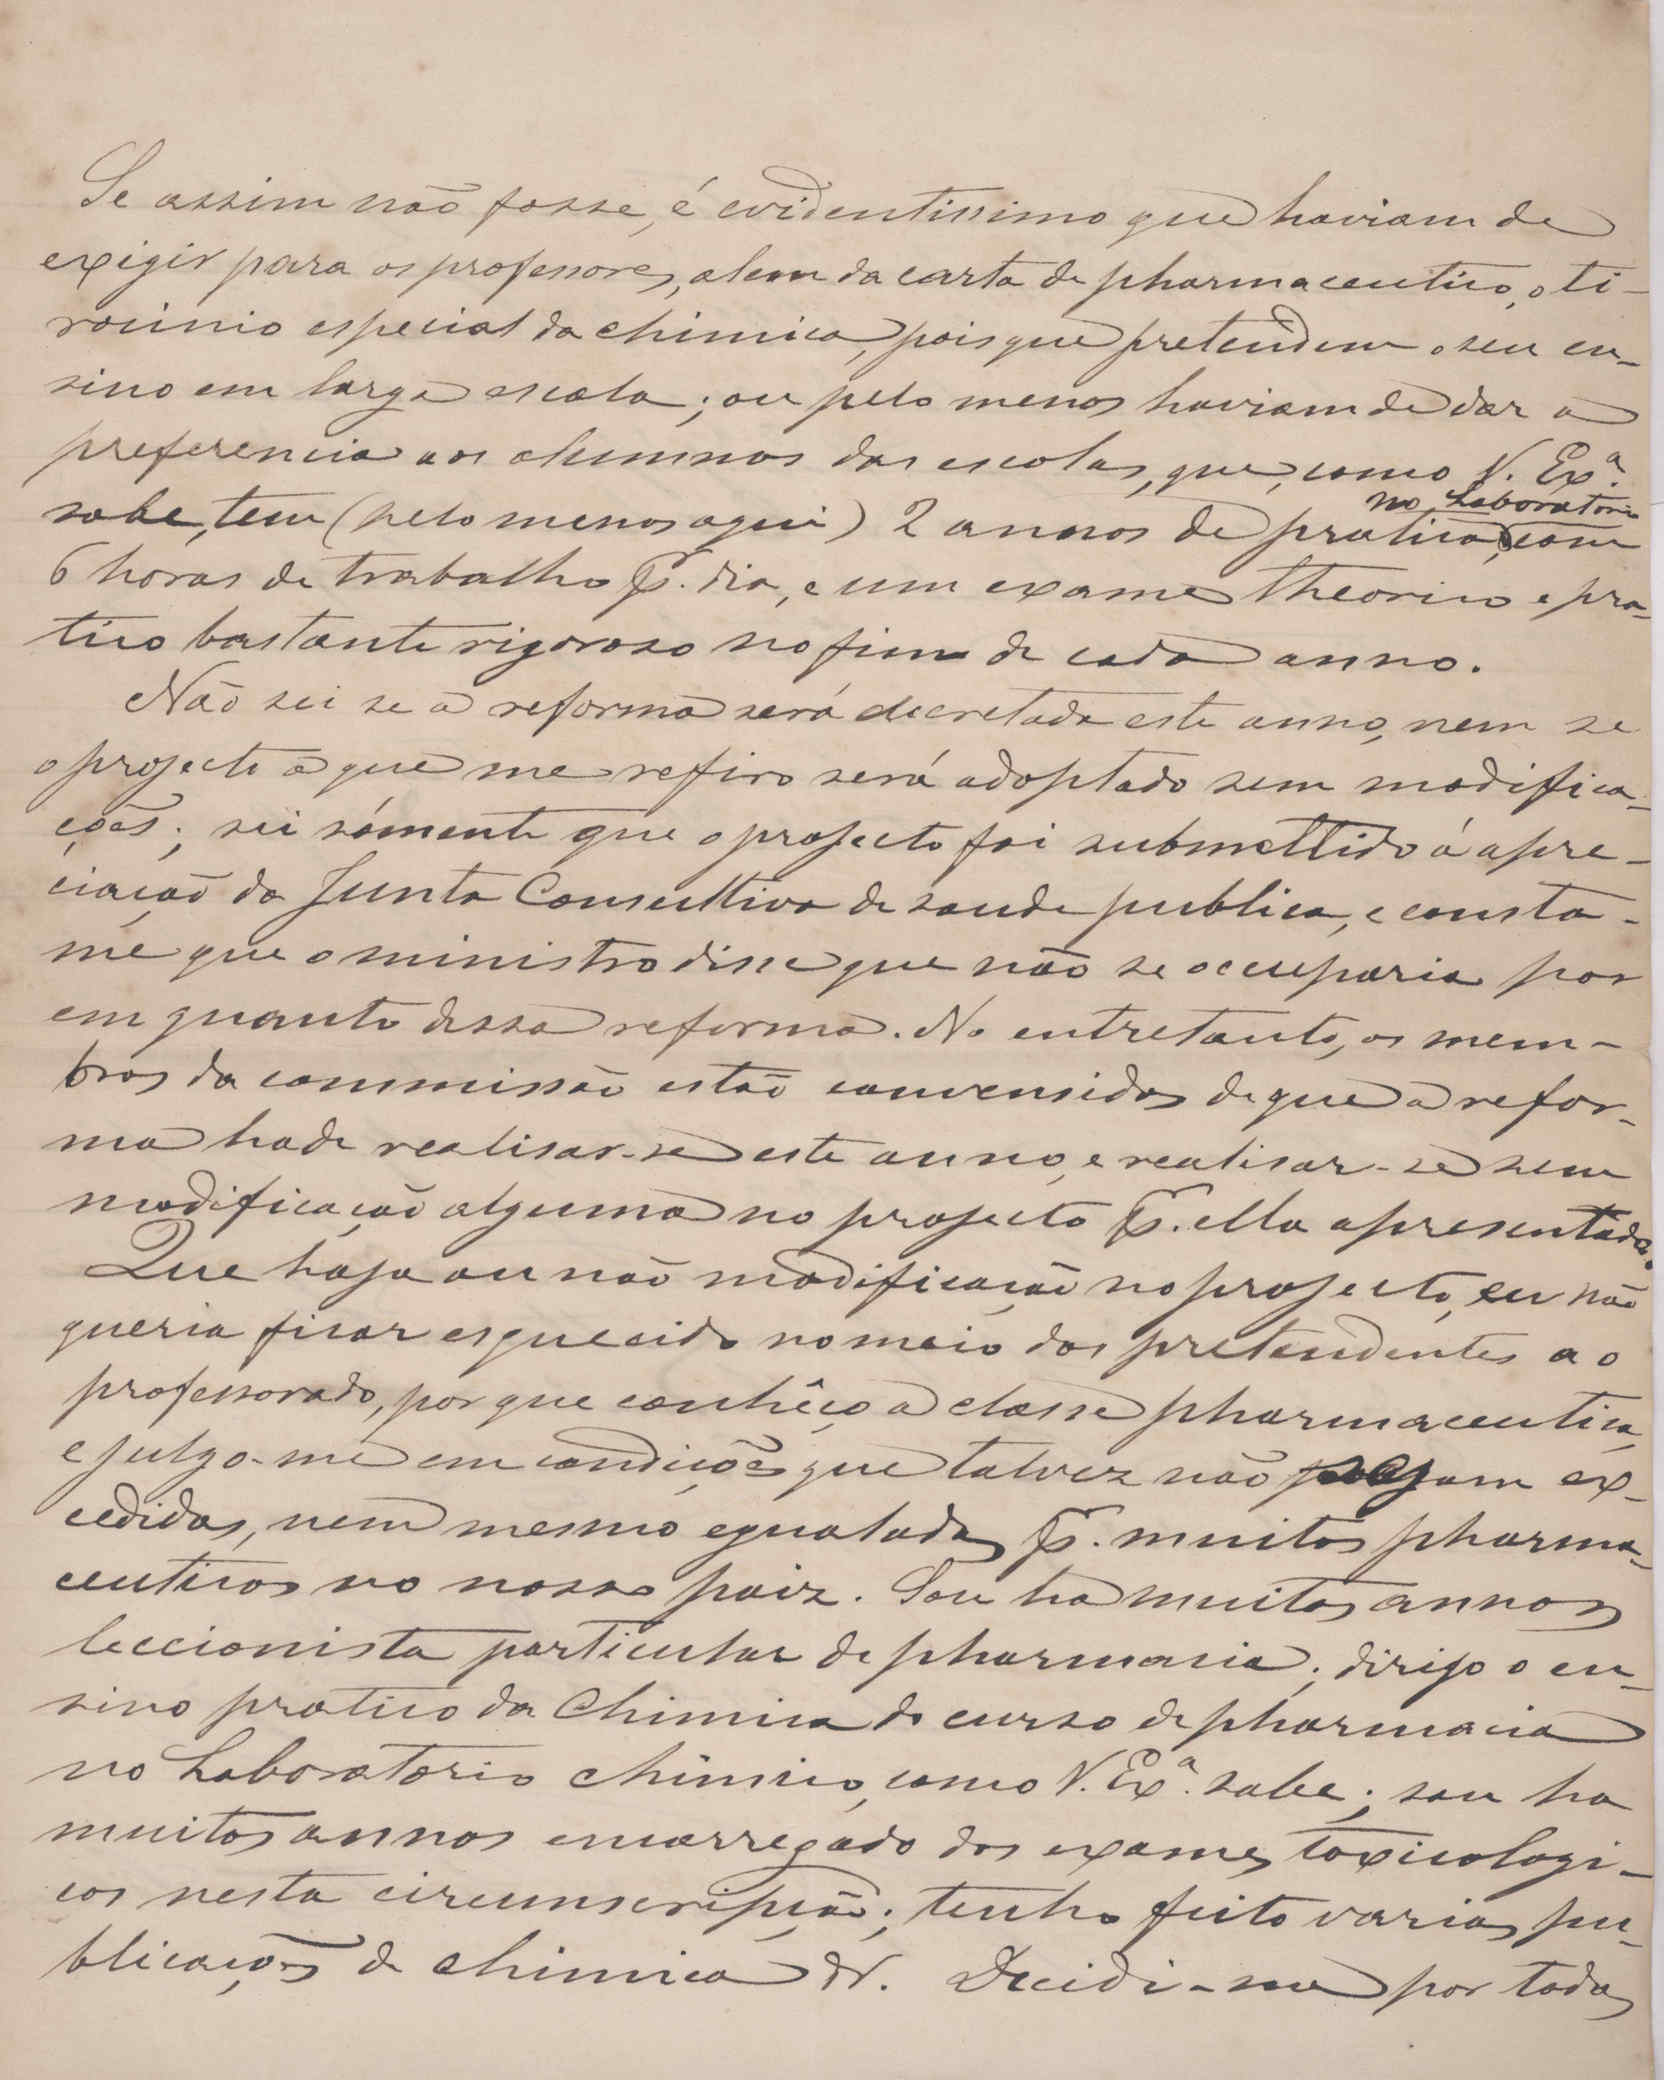 Se assim não fosse, é evidentissimo que haviam de
exigir para os professores, alem da carta de pharmaceutico, o ti-
rocinio especial da chimica, pois que pretendem o seu en-
sino em larga escala; ou pelo menos haviam de dar a
preferencia aos alumnos das escolas, que, como V. Exª.
no Laboratorio
sabe, tem (pelo menos aqui) 2 annos de pratica, com
6 horas de trabalho p. dia, e um exame theorico e pra-
tico bastante rigoroso no fim de cada anno.
Não sei se a reforma será decretada este anno, nem se
o projecto a que me refiro será adoptado sem modifica-
ções; sei sómente que o projecto foi submettido á apre-
ciação da Junta Consultiva de saude publica, e consta-
me que o ministro disse que não se occuparia por
em quanto dessa reforma. No entretanto, os mem-
bros da commissão estão convensidos de que a refor-
ma hade realisar-se este anno, e realisar-se sem
modificação alguma no projecto p. ella apresentado.
Que haja ou não modificação no projecto, eu não
queria ficar esquecido no meio dos pretendentes ao
professorado, por que conhêço a classe pharmaceutica,
e julgo-me em condições que talvez não sejam ex-
cedidas, nem mesmo egualadas p. muitos pharma-
ceuticos no nosso paiz. Sou ha muitos annos
leccionista particular de pharmacia; dirijo o en-
sino pratico da Chimica do curso de pharmacia
no Laboratorio chimico, como V. Exª. sabe; sou ha
muitos annos encarregado dos exames toxicologi-
cos nesta circunscripção; tenho feito varias pu-
blicações de chimica &. Decidi-me por todas